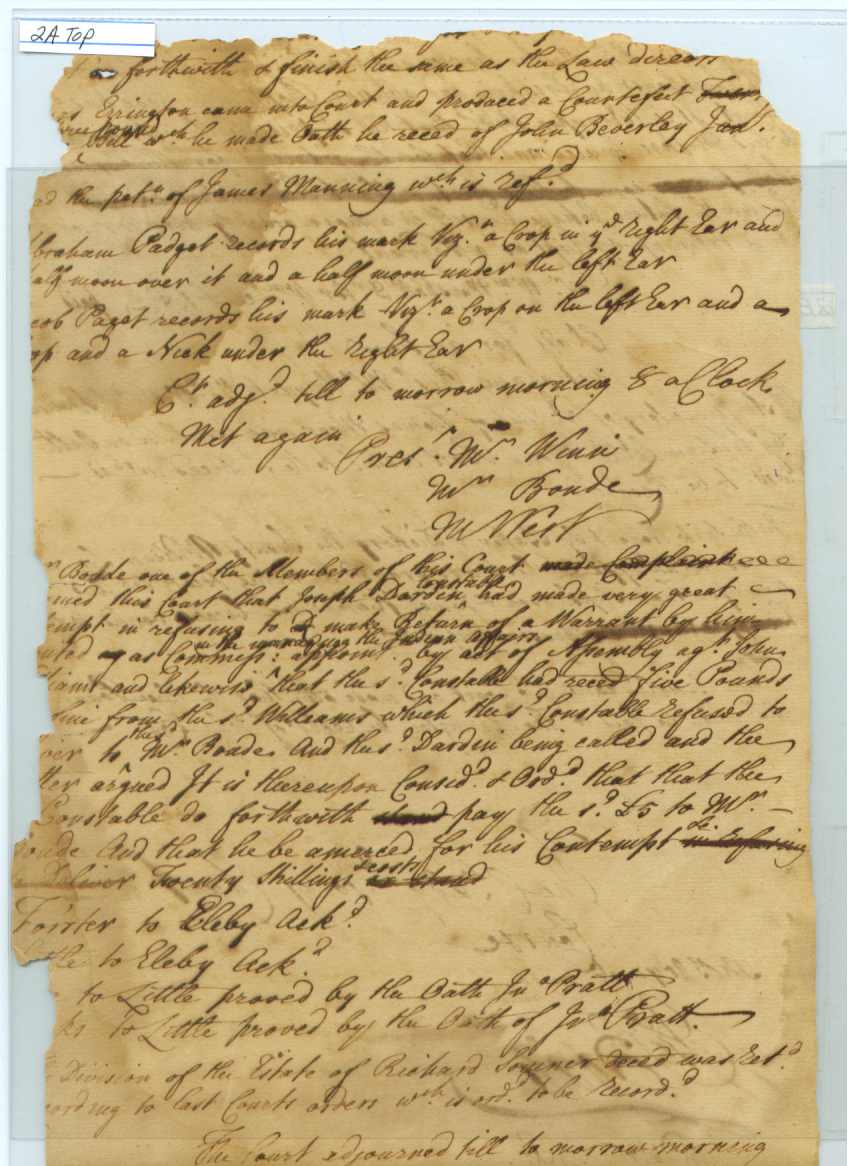 2A Top
forthwith & finish the same as the Law direcss
Errington came into Court and produced a Courtefeit
Bill wch he made Oath he reced of John Beverley Junr.
the petn. of James Manning wch is refd.
braham Padget records his mark Vizt. a Crop in yd right Ear and
alf moon over it and a half moon under the left Ear
cob Paget records his mark Vizt. a Crop on the left Ear and a
op and a Nick under the right Ear
Ct. adjd. till to morrow morning 8 a Clock
Met again
Prest. Mr. Winn
Mr Bonde
M West
Bonde one of the Members of this Court made Complaint
rmed this Court that Joseph Dardin Constable had made very great
empt in refusing to make Return of a Warrant by him
in the managing the Indian affairs
as Commiss: appoint by act of Assembly agt. John
liams and likewise that the sd. Constable had reced five Pounds
fine from the sd. Williams which the sd. Constable refused to
iver to the Mr. Bonde. And the sd. Dardin being called and the
tter argued It is thereupon Considd. & Ord.d that that the
Constable do forthwith stand pay the sd. £5 to Mr.
onde And that he be amerced for his Contempt in refusing
Deliver Twenty Shillings & costs or stand
Forster to Eleby Ackd.
ttle to Eleby Ackd.
to Little proved by the Oath Jno Pratt
ks to Little proved by the Oath of Jno Pratt.
Division of the Estate of Richard Somner deced was retd
cording to last Courts orders wch is ord. to be record.d
The Court adjourned till to morrow morning